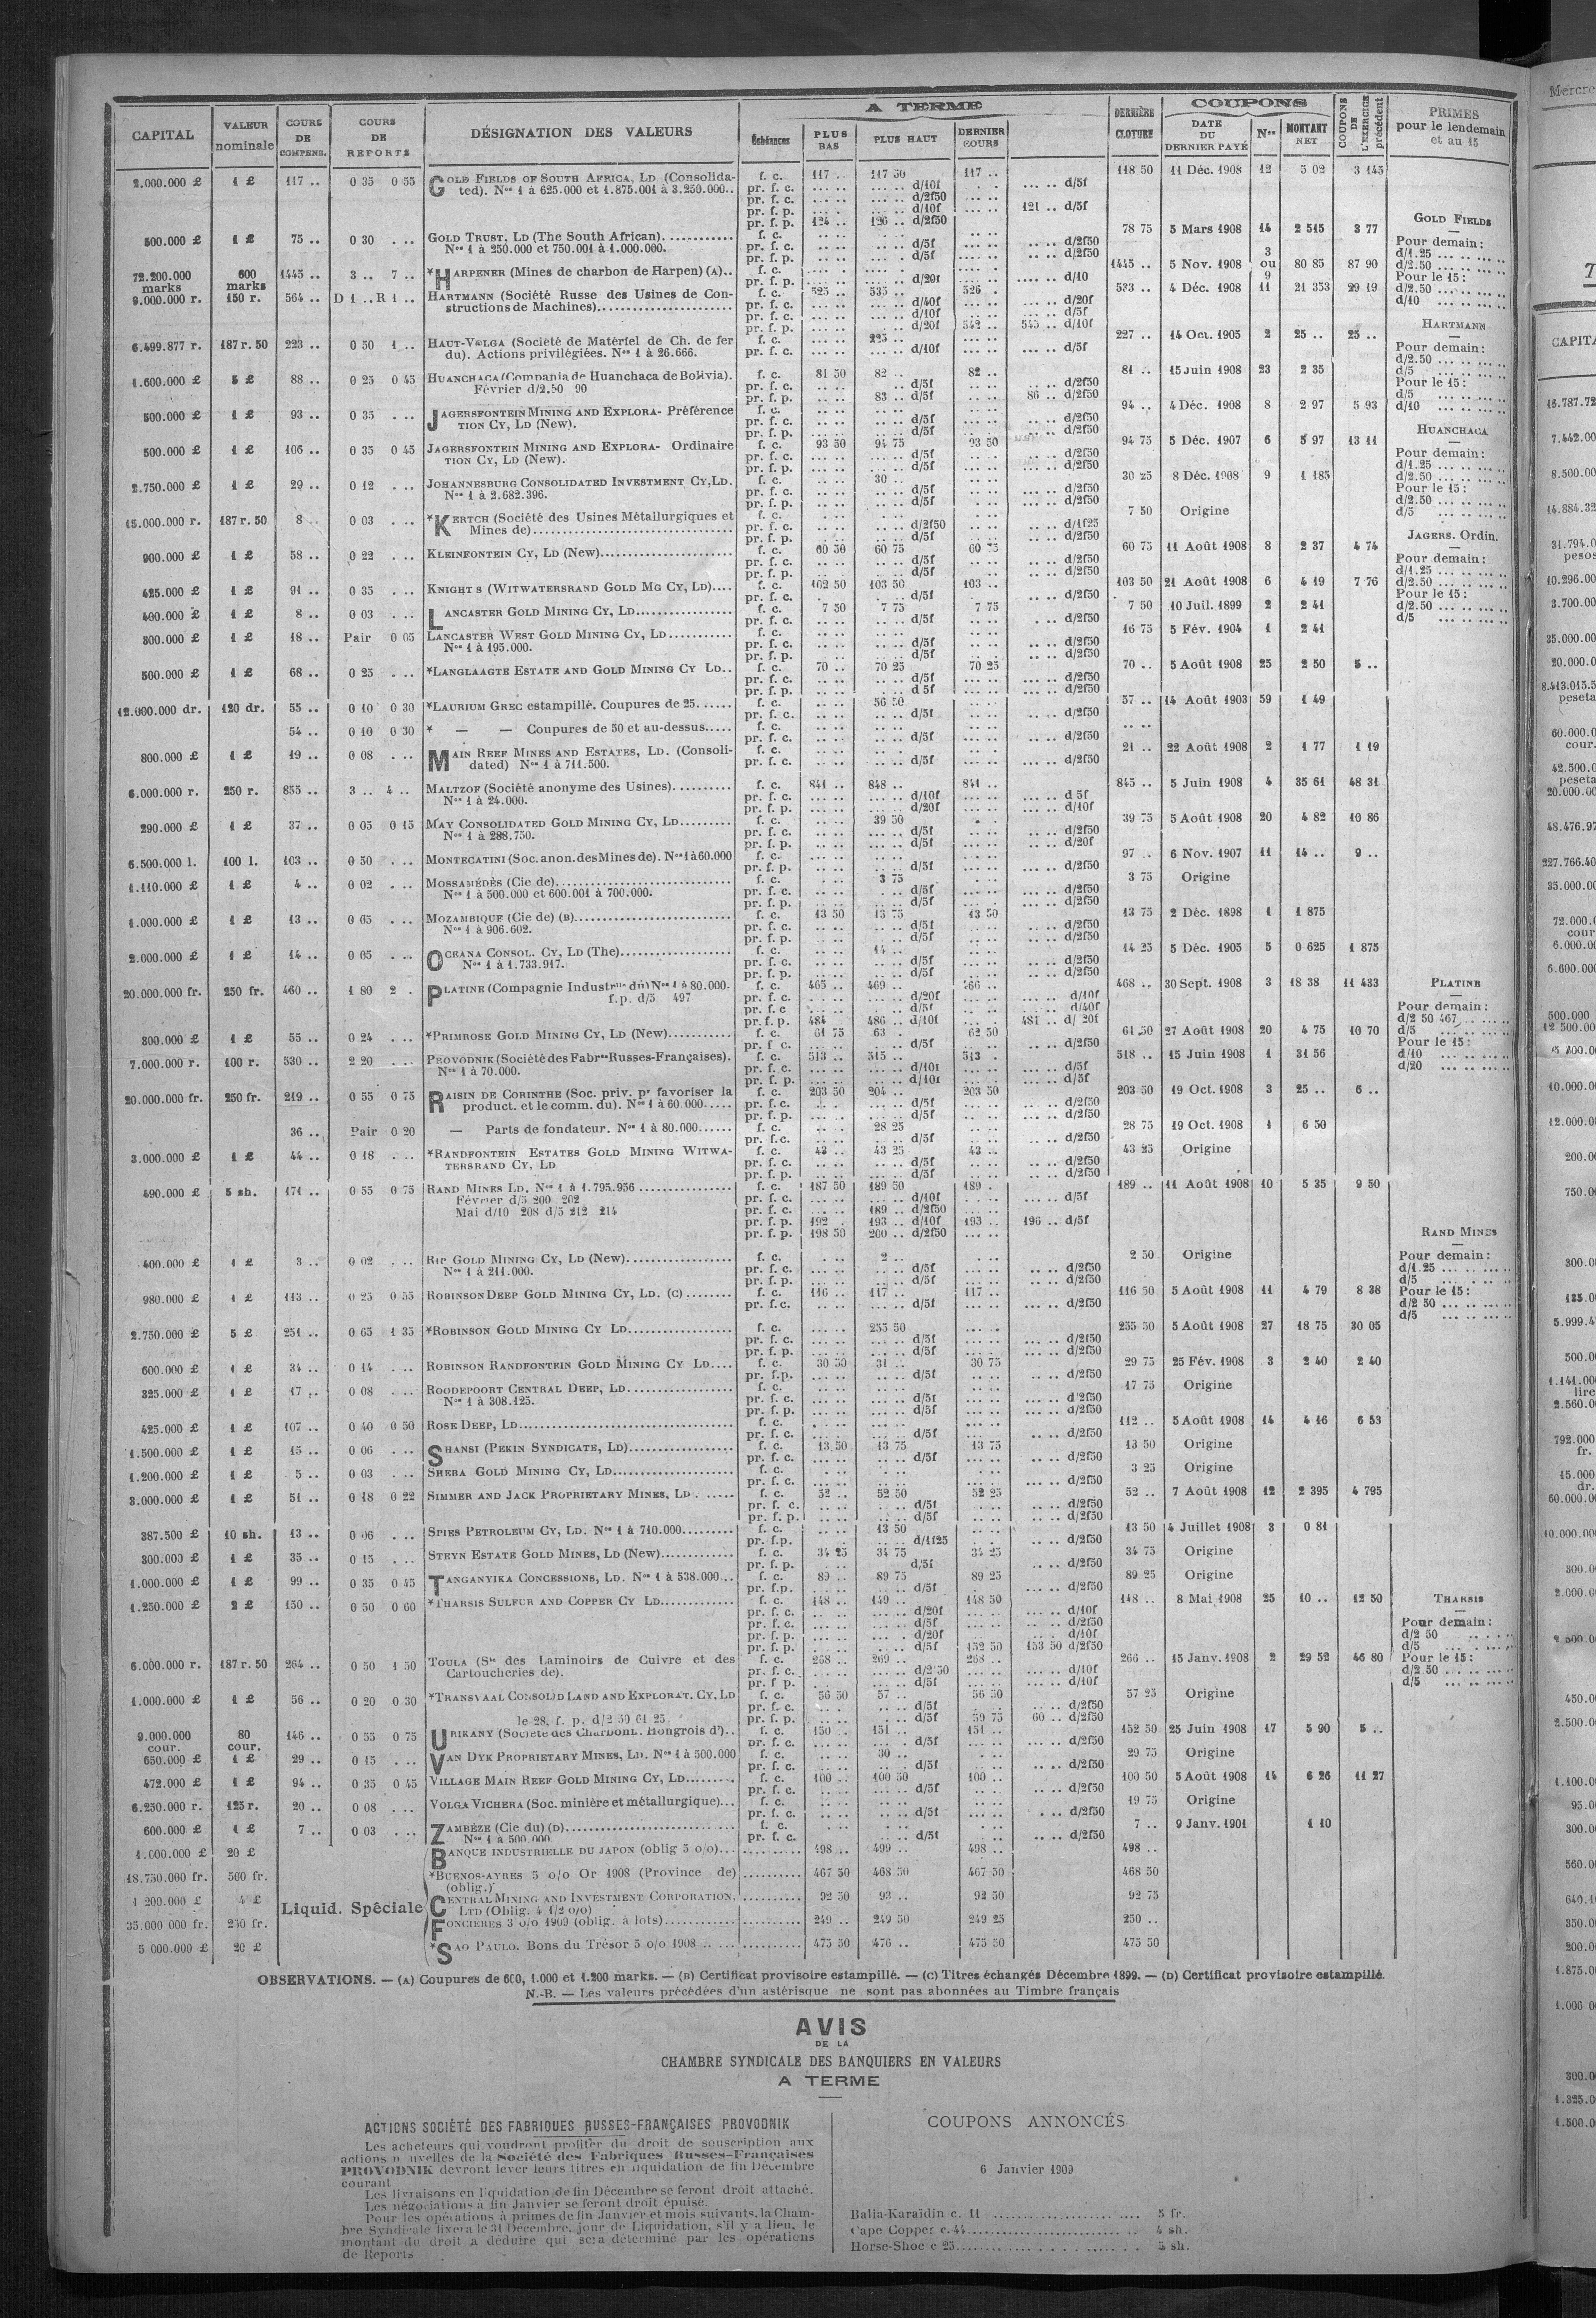 A TERME
COUPONS
CAPITAL | VALEUR nominale | COURS DE COMPENS. | COURS DE REPORTS | DÉSIGNATION DES VALEURS | Échéances | PLUS BAS | PLUS HAUT | DERNIER COURS | DERNIÈRE CLOTURE | DATE DU DERNIER PAYÉ | Nos | MONTANT NET | COUPONS DE L'EXERCICE précédent | PRIMES pour le lendemain et au 15
2.000.000 £ 1 £ 117 .. 0 35 0 55 GOLD FIELDS OF SOUTH AFRICA, LD (Consolida- f. c. 117 .. 117 50 117 .. 118 50 11 Déc. 1908 12 5 02 3 145
ted). Nos 1 à 625.000 et 1.875.001 à 3.250.000.. pr. f. c. d/10f d/5f
pr. f. c. d/2f50
pr. f. p. d/10f 121 .. d/5f
pr. f. p. 124 .. 126 .. d/2f50
500.000 £ 1 £ 75 .. 0 30 . .. GOLD TRUST, LD (The South African) f. c. 78 75 5 Mars 1908 14 2 515 3 77
Nos 1 à 250.000 et 750.001 à 1.000.000. pr. f. c. d/5f d/2f50
pr. f. p. d/5f d/2f50
72.200.000 marks 600 marks 1445 .. 3 .. 7 .. *HARPENER (Mines de charbon de Harpen) (A).. f. c. 1445 .. 5 Nov. 1908 3 ou 9 80 85 87 90
pr. f. p. d/20f d/10
9.000.000 r. 150 r. 564 .. D 1 .. R 1 .. HARTMANN (Société Russe des Usines de Con- f. c. 525 .. 535 .. 526 .. 533 .. 4 Déc. 1908 11 21 353 29 19
structions de Machines) pr. f. c. d/40f d/20f
pr. f. c. d/10f d/5f
pr. f. p. d/20f 542 .. 545 .. d/10f
6.499.877 r. 187 r. 50 223 .. 0 50 1 .. HAUT-VOLGA (Societé de Matériel de Ch. de fer f. c. 225 .. 227 .. 14 Oct. 1905 2 25 .. 25 ..
du). Actions privilégiées. Nos 1 à 26.666. pr. f. c. d/10f d/5f
1.600.000 £ 5 £ 88 .. 0 25 0 45 HUANCHACA (Compania de Huanchaca de Bolivia). f. c. 81 50 82 .. 82 .. 81 .. 15 Juin 1908 23 2 35
Février d/2.50 90 pr. f. c. d/5f d/2f50
pr. f. p. 83 .. d/5f 86 .. d/2f50
500.000 £ 1 £ 93 .. 0 35 . .. JAGERSFONTEIN MINING AND EXPLORA- Préférence f. c. 94 .. 4 Déc. 1908 8 2 97 5 93
TION CY, LD (New). pr. f. c. d/5f d/2f50
pr. f. p. d/5f d/2f50
500.000 £ 1 £ 106 .. 0 35 0 45 JAGERSFONTEIN MINING AND EXPLORA- Ordinaire f. c. 93 50 94 75 93 50 94 75 5 Déc. 1907 6 5 97 13 11
TION CY, LD (New). pr. f. c. d/5f d/2f50
pr. f. p. d/5f d/2f50
2.750.000 £ 1 £ 29 .. 0 12 . .. JOHANNESBURG CONSOLIDATED INVESTMENT CY, LD. f. c. 30 .. 30 25 8 Déc. 1908 9 1 185
Nos 1 à 2.682.396. pr. f. c. d/5f d/2f50
pr. f. p. d/5f d/2f50
15.000.000 r. 187 r. 50 8 0 03 . .. *KERTCH (Société des Usines Métallurgiques et f. c. 7 50 Origine
Mines de) pr. f. c. d/2f50 d/1f25
pr. f. p. d/5f d/2f50
900.000 £ 1 £ 58 .. 0 22 . .. KLEINFONTEIN CY, LD (New) f. c. 60 50 60 75 60 75 60 75 11 Août 1908 8 2 37 4 74
pr. f. c. d/5f d/2f50
pr. f. p. d/5f d/2f50
425.000 £ 1 £ 91 .. 0 35 . .. KNIGHT S (WITWATERSRAND GOLD MG CY, LD).... f. c. 102 50 103 50 103 .. 103 50 21 Août 1908 6 4 19 7 76
pr. f. c. d/5f d/2f50
400.000 £ 1 £ 8 .. 0 03 . .. LANCASTER GOLD MINING CY, LD f. c. 7 50 7 75 7 75 7 50 10 Juil. 1899 2 2 41
pr. f. c. d/5f d/2f50
300.000 £ 1 £ 18 .. Pair 0 05 LANCASTER WEST GOLD MINING CY, LD f. c. 16 75 5 Fév. 1904 1 2 41
Nos 1 à 195.000. pr. f. c. d/5f d/2f50
pr. f. p. d/5f d/2f50
500.000 £ 1 £ 68 .. 0 25 . .. *LANGLAAGTE ESTATE AND GOLD MINING CY LD.. f. c. 70 .. 70 25 70 25 70 .. 5 Août 1908 25 2 50 5 ..
pr. f. c. d/5f d/2f50
pr. f. p. d 5f d/2f50
12.000.000 dr. 120 dr. 55 .. 0 10 0 30 *LAURIUM GREC estampillé. Coupures de 25 f. c. 56 50 57 .. 14 Août 1903 59 1 49
pr. f. c. d/5f d/2f50
54 .. 0 10 0 30 * — — Coupures de 50 et au-dessus..... f. c.
pr. f. c. d/5f d/2f50
800.000 £ 1 £ 19 .. 0 08 . .. MAIN REEF MINES AND ESTATES, LD. (Consoli- f. c. 21 .. 22 Août 1908 2 1 77 1 19
dated) Nos 1 à 711.500. pr. f. c. d/5f d/2f50
6.000.000 r. 250 r. 855 .. 3 .. 4 .. MALTZOF (Société anonyme des Usines) f. c. 841 .. 848 .. 841 .. 845 .. 5 Juin 1908 4 35 61 48 31
Nos 1 à 24.000. pr. f. c. d/10f d 5f
pr. f. p. d/20f d/10f
290.000 £ 1 £ 37 .. 0 05 0 15 MAY CONSOLIDATED GOLD MINING CY, LD f. c. 39 50 39 75 5 Août 1908 20 4 82 10 86
Nos 1 à 288.750. pr. f. c. d/5f d/2f50
pr. f. p. d/5f d/20f
6.500.000 l. 100 l. 103 .. 0 50 . .. MONTECATINI (Soc. anon. des Mines de). Nos 1 à 60.000 f. c. 97 .. 6 Nov. 1907 11 14 .. 9 ..
pr. f. p. d/5f d/2f50
1.110.000 £ 1 £ 4 .. 0 02 . .. MOSSAMÉDÈS (Cie de) f. c. 3 75 3 75 Origine
Nos 1 à 500.000 et 600.001 à 700.000. pr. f. c. d/5f d/2f50
pr. f. p. d/5f d/2f50
1.000.000 £ 1 £ 13 .. 0 05 . .. MOZAMBIQUE (Cie de) (B) f. c. 13 50 13 75 13 50 13 75 2 Déc. 1898 1 1 875
Nos 1 à 906.602. pr. f. c. d/5f d/2f50
pr. f. p. d/5f d/2f50
2.000.000 £ 1 £ 14 .. 0 05 . .. OCEANA CONSOL. CY, LD (The) f. c. 14 .. 14 25 5 Déc. 1905 5 0 625 1 875
Nos 1 à 1.733.917. pr. f. c. d/5f d/2f50
pr. f. p. d/5f d/2f50
20.000.000 fr. 250 fr. 460 .. 1 80 2 . PLATINE (Compagnie Industrlle du) Nos 1 à 80.000. f. c. 465 .. 469 .. 466 .. 468 .. 30 Sept. 1908 3 18 38 11 433
f.p. d/5 497 pr. f. c. d/20f d/10f
pr. f. c d/5f d/40f
pr. f. p. 484 486 .. d/10f 481 .. d/ 20f
300.000 £ 1 £ 55 .. 0 24 . .. *PRIMROSE GOLD MINING CY, LD (New) f. c. 61 75 63 62 50 61 50 27 Août 1908 20 4 75 10 70
pr. f c. d/5f d/2f50
7.000.000 r. 100 r. 530 .. 2 20 . .. PROVODNIK (Société des Fabres Russes-Françaises). f. c. 513 .. 515 .. 513 . 518 .. 15 Juin 1908 1 31 56
Nos 1 à 70.000. pr. f. c. d/10f d/5f
pr. f. p. d/10f d/5f
20.000.000 fr. 250 fr. 219 .. 0 55 0 75 RAISIN DE CORINTHE (Soc. priv. pr favoriser la f. c. 203 50 204 .. 203 50 203 50 19 Oct. 1908 3 25 .. 6 ..
product. et le comm. du). Nos 1 à 60.000..... pr. f. c. d/5f d/2f50
pr. f. p. d/5f d/2f50
36 .. Pair 0 20 — Parts de fondateur. Nos 1 à 80.000...... f. c. 28 25 28 75 19 Oct. 1908 1 6 50
pr. f. c. d/5f d/2f50
3.000.000 £ 1 £ 44 .. 0 18 . .. *RANDFONTEIN ESTATES GOLD MINING WITWA- f. c. 43 .. 43 25 43 .. 43 25 Origine
TERSRAND CY, LD pr. f. c. d/5f d/2f50
pr. f. p. d/5f d/2f50
490.000 £ 5 sh. 171 .. 0 55 0 75 RAND MINES LD. Nos 1 à 1.795.956 f. c. 187 50 189 50 189 . 189 .. 11 Août 1908 10 5 35 9 50
Février d/5 200 202 pr. f. c. d/10f d/5f
Mai d/10 208 d/5 212 214 pr. f. c. 189 .. d/2f50
pr. f. p. 192 . 193 .. d/10f 193 .. 196 .. d/5f
pr. f. p. 198 50 200 .. d/2f50
400.000 £ 1 £ 3 .. 0 02 . .. RIP GOLD MINING CY, LD (New) f. c. 2 .. 2 50 Origine
Nos 1 à 211.000. pr. f. c. d/5f d/2f50
pr. f. p. d/5f d/2f50
980.000 £ 1 £ 113 .. 0 25 0 55 ROBINSON DEEP GOLD MINING CY, LD. (C) f. c. 116 .. 117 .. 117 .. 116 50 5 Août 1908 11 4 79 8 38
pr. f. c. d/5f d/2f50
2.750.000 £ 5 £ 251 .. 0 65 1 35 *ROBINSON GOLD MINING CY LD f. c. 255 50 255 50 5 Août 1908 27 18 75 30 05
pr. f. c. d/5f d/2f50
pr. f. p. d/5f d/2f50
600.000 £ 1 £ 34 .. 0 14 . .. ROBINSON RANDFONTEIN GOLD MINING CY LD.... f. c. 30 50 31 .. 30 75 29 75 25 Fév. 1908 3 2 40 2 40
pr. f.p. d/5f d/2f50
325.000 £ 1 £ 17 .. 0 08 . .. ROODEPOORT CENTRAL DEEP, LD f. c. 17 75 Origine
Nos 1 à 308.125. pr. f. c. d/5f d/2f50
pr. f. p. d/5f d/2f50
425.000 £ 1 £ 107 .. 0 40 0 50 ROSE DEEP, LD f. c. 112 .. 5 Août 1908 14 4 16 6 53
pr. f. c. d/5f d/2f50
1.500.000 £ 1 £ 15 .. 0 06 . .. SHANSI (PEKIN SYNDICATE, LD) f. c. 13 50 13 75 13 75 13 50 Origine
pr. f. c. d/5f d/2f50
1.200.000 £ 1 £ 5 .. 0 03 . .. SHEBA GOLD MINING CY, LD f. c. 3 25 Origine
pr. f. c. d/2f50
3.000.000 £ 1 £ 51 .. 0 18 0 22 SIMMER AND JACK PROPRIETARY MINES, LD f. c. 52 .. 52 50 52 25 52 .. 7 Août 1908 12 2 395 4 795
pr. f. c. d/5f d/2f50
pr. f. p. d/5f d/2f50
387.500 £ 10 sh. 13 .. 0 06 . .. SPIES PETROLEUM CY, LD. Nos 1 à 710.000 f. c. 13 50 13 50 4 Juillet 1908 3 0 81
pr. f.p. d/1f25 d/2f50
300.000 £ 1 £ 35 .. 0 15 . .. STEYN ESTATE GOLD MINES, LD (New) f. c. 34 25 34 75 34 25 34 75 Origine
pr. f. p. d/5f d/2f50
1.000.000 £ 1 £ 99 .. 0 35 0 45 TANGANYIKA CONCESSIONS, LD. Nos 1 à 538.000... f. c. 89 .. 89 75 89 25 89 25 Origine
pr. f.p. d/5f d/2f50
1.250.000 £ 2 £ 150 .. 0 50 0 60 *THARSIS SULFUR AND COPPER CY LD f. c. 148 .. 149 .. 148 50 148 .. 8 Mai 1908 25 10 .. 12 50
pr. f. c. d/20f d/10f
pr. f. c. d/5f d/2f50
pr. f. p. d/20f d/10f
pr. f. p. d/5f 152 50 153 50 d/2f50
6.000.000 r. 187 r. 50 264 .. 0 50 1 50 TOULA (Sté des Laminoirs de Cuivre et des f. c. 268 .. 269 .. 268 .. 266 .. 15 Janv. 1908 2 29 52 46 80
Cartoucheries de). pr. f. c. d/2 50 d/10f
pr. f p. d/5f d/10f
1.000.000 £ 1 £ 56 .. 0 20 0 30 *TRANSVAAL CONSOLID LAND AND EXPLORAT. CY, LD f. c. 56 50 57 .. 56 50 57 25 Origine
pr. f. c. d/5f d/2f50
le 28, f. p. d/2 50 61 25 pr. f. p. d/5f 59 75 60 .. d/2f50
9.000.000 cour. 80 cour. 146 .. 0 55 0 75 URIKANY (Société des Charbonn. Hongrois d').. f. c. 150 .. 151 .. 151 .. 152 50 25 Juin 1908 17 5 90 5 ..
pr. f. c. d/5f d/2f50
650.000 £ 1 £ 29 .. 0 15 . .. VAN DYK PROPRIETARY MINES, LD. Nos 1 à 500.000 f. c. 30 .. 29 75 Origine
pr. f. c. d/5f d/2f50
472.000 £ 1 £ 94 .. 0 35 0 45 VILLAGE MAIN REEF GOLD MINING CY, LD f. c. 100 .. 100 50 100 .. 100 50 5 Août 1908 14 6 26 11 27
pr. f. c. d/5f d/2f50
6.250.000 r. 125 r. 20 .. 0 08 . .. VOLGA VICHERA (Soc. minière et métallurgique)... f. c. 19 75 Origine
pr. f. c. d/5f d/2f50
600.000 £ 1 £ 7 .. 0 03 . .. ZAMBÈZE (Cie du) (D) f. c. 7 .. 9 Janv. 1901 1 10
Nos 1 à 500.000 pr. f. c. d/5f d/2f50
1.000.000 £ 20 £ BANQUE INDUSTRIELLE DU JAPON (oblig 5 o/o)... 498 .. 499 .. 498 .. 498 ..
18.750.000 fr. 500 fr. *BUENOS-AYRES 5 o/o Or 1908 (Province de) 467 50 468 50 467 50 468 50
(oblig.)
1 200.000 £ 4 £ Liquid. Spéciale CENTRAL MINING AND INVESTMENT CORPORATION, 92 50 93 .. 92 50 92 75
LTD (Oblig. 4 1/2 o/o)
35.000 000 fr. 250 fr. FONCIÈRES 3 o/o 1909 (oblig. à lots) 249 .. 249 50 249 25 250 ..
5 000.000 £ 20 £ *SAO PAULO. Bons du Trésor 5 o/o 1908 475 50 476 .. 475 50 475 50
GOLD FIELDS
Pour demain:
d/1.25
d/2.50
Pour le 15:
d/2.50
d/10
HARTMANN
Pour demain:
d/2.50
d/5
Pour le 15:
d/5
d/10
HUANCHACA
Pour demain:
d/1.25
d/2.50
Pour le 15:
d/2.50
d/5
JAGERS. Ordin.
Pour demain:
d/1.25
d/2.50
Pour le 15:
d/2.50
d/5
PLATINE
Pour demain:
d/2 50 467
d/5
Pour le 15:
d/10
d/20
RAND MINES
Pour demain:
d/1.25
d/5
Pour le 15:
d/2 50
d/5
THARSIS
Pour demain:
d/2 50
d/5
Pour le 15:
d/2.50
d/5
OBSERVATIONS. — (A) Coupures de 600, 1.000 et 1.200 marks. — (B) Certificat provisoire estampillé. — (C) Titres échangés Décembre 1899. — (D) Certificat provisoire estampillé.
N.-B. — Les valeurs précédées d'un astérisque ne sont pas abonnées au Timbre français
AVIS
DE LA
CHAMBRE SYNDICALE DES BANQUIERS EN VALEURS
A TERME
ACTIONS SOCIÉTÉ DES FABRIQUES RUSSES-FRANÇAISES PROVODNIK
Les acheteurs qui voudront profiter du droit de souscription aux
actions n uvelles de la Société des Fabriques Russes-Françaises
PROVODNIK devront lever leurs titres en liquidation de fin Décembre
courant
Les livraisons en l'quidation de fin Décembre se feront droit attaché.
Les négociations à fin Janvier se feront droit épuisé.
Pour les opérations à primes de fin Janvier et mois suivants, la Cham-
bre Syndicale fixera le 31 Décembre, jour de Liquidation, s'il y a lieu, le
montant du droit a déduire qui sera déterminé par les opérations
de Reports
COUPONS ANNONCÉS
6 Janvier 1909
Balia-Karaïdin c. 11 5 fr.
Cape Copper c. 44 4 sh.
Horse-Shoe c 25 5 sh.
Mercre
T
CAPITA
16.787.72
7.442.00
8.500.00
14.884.32
31.794.0
pesos
10.296.00
3.700.00
35.000.00
20.000.00
8.413.015.5
peseta
60.000.0
cour.
42.500.0
peseta
20.000.00
48.476.97
227.766.40
35.000.00
72.000.0
cour
6.000.00
6.600.00
500.000
12 500.00
10.000.00
12.000.00
200.00
750.00
300.00
125.00
5.999.4
500.00
1.141.00
lire
2.560.0
792.000
fr.
15.000
dr.
60.000.0
10.000.00
300.0
2.000.0
450.0
2.500.0
1.100.0
95.0
300.00
560.0
640.1
350.0
200.0
1.875.0
1.006 0
300.0
1.325.0
1.500.0